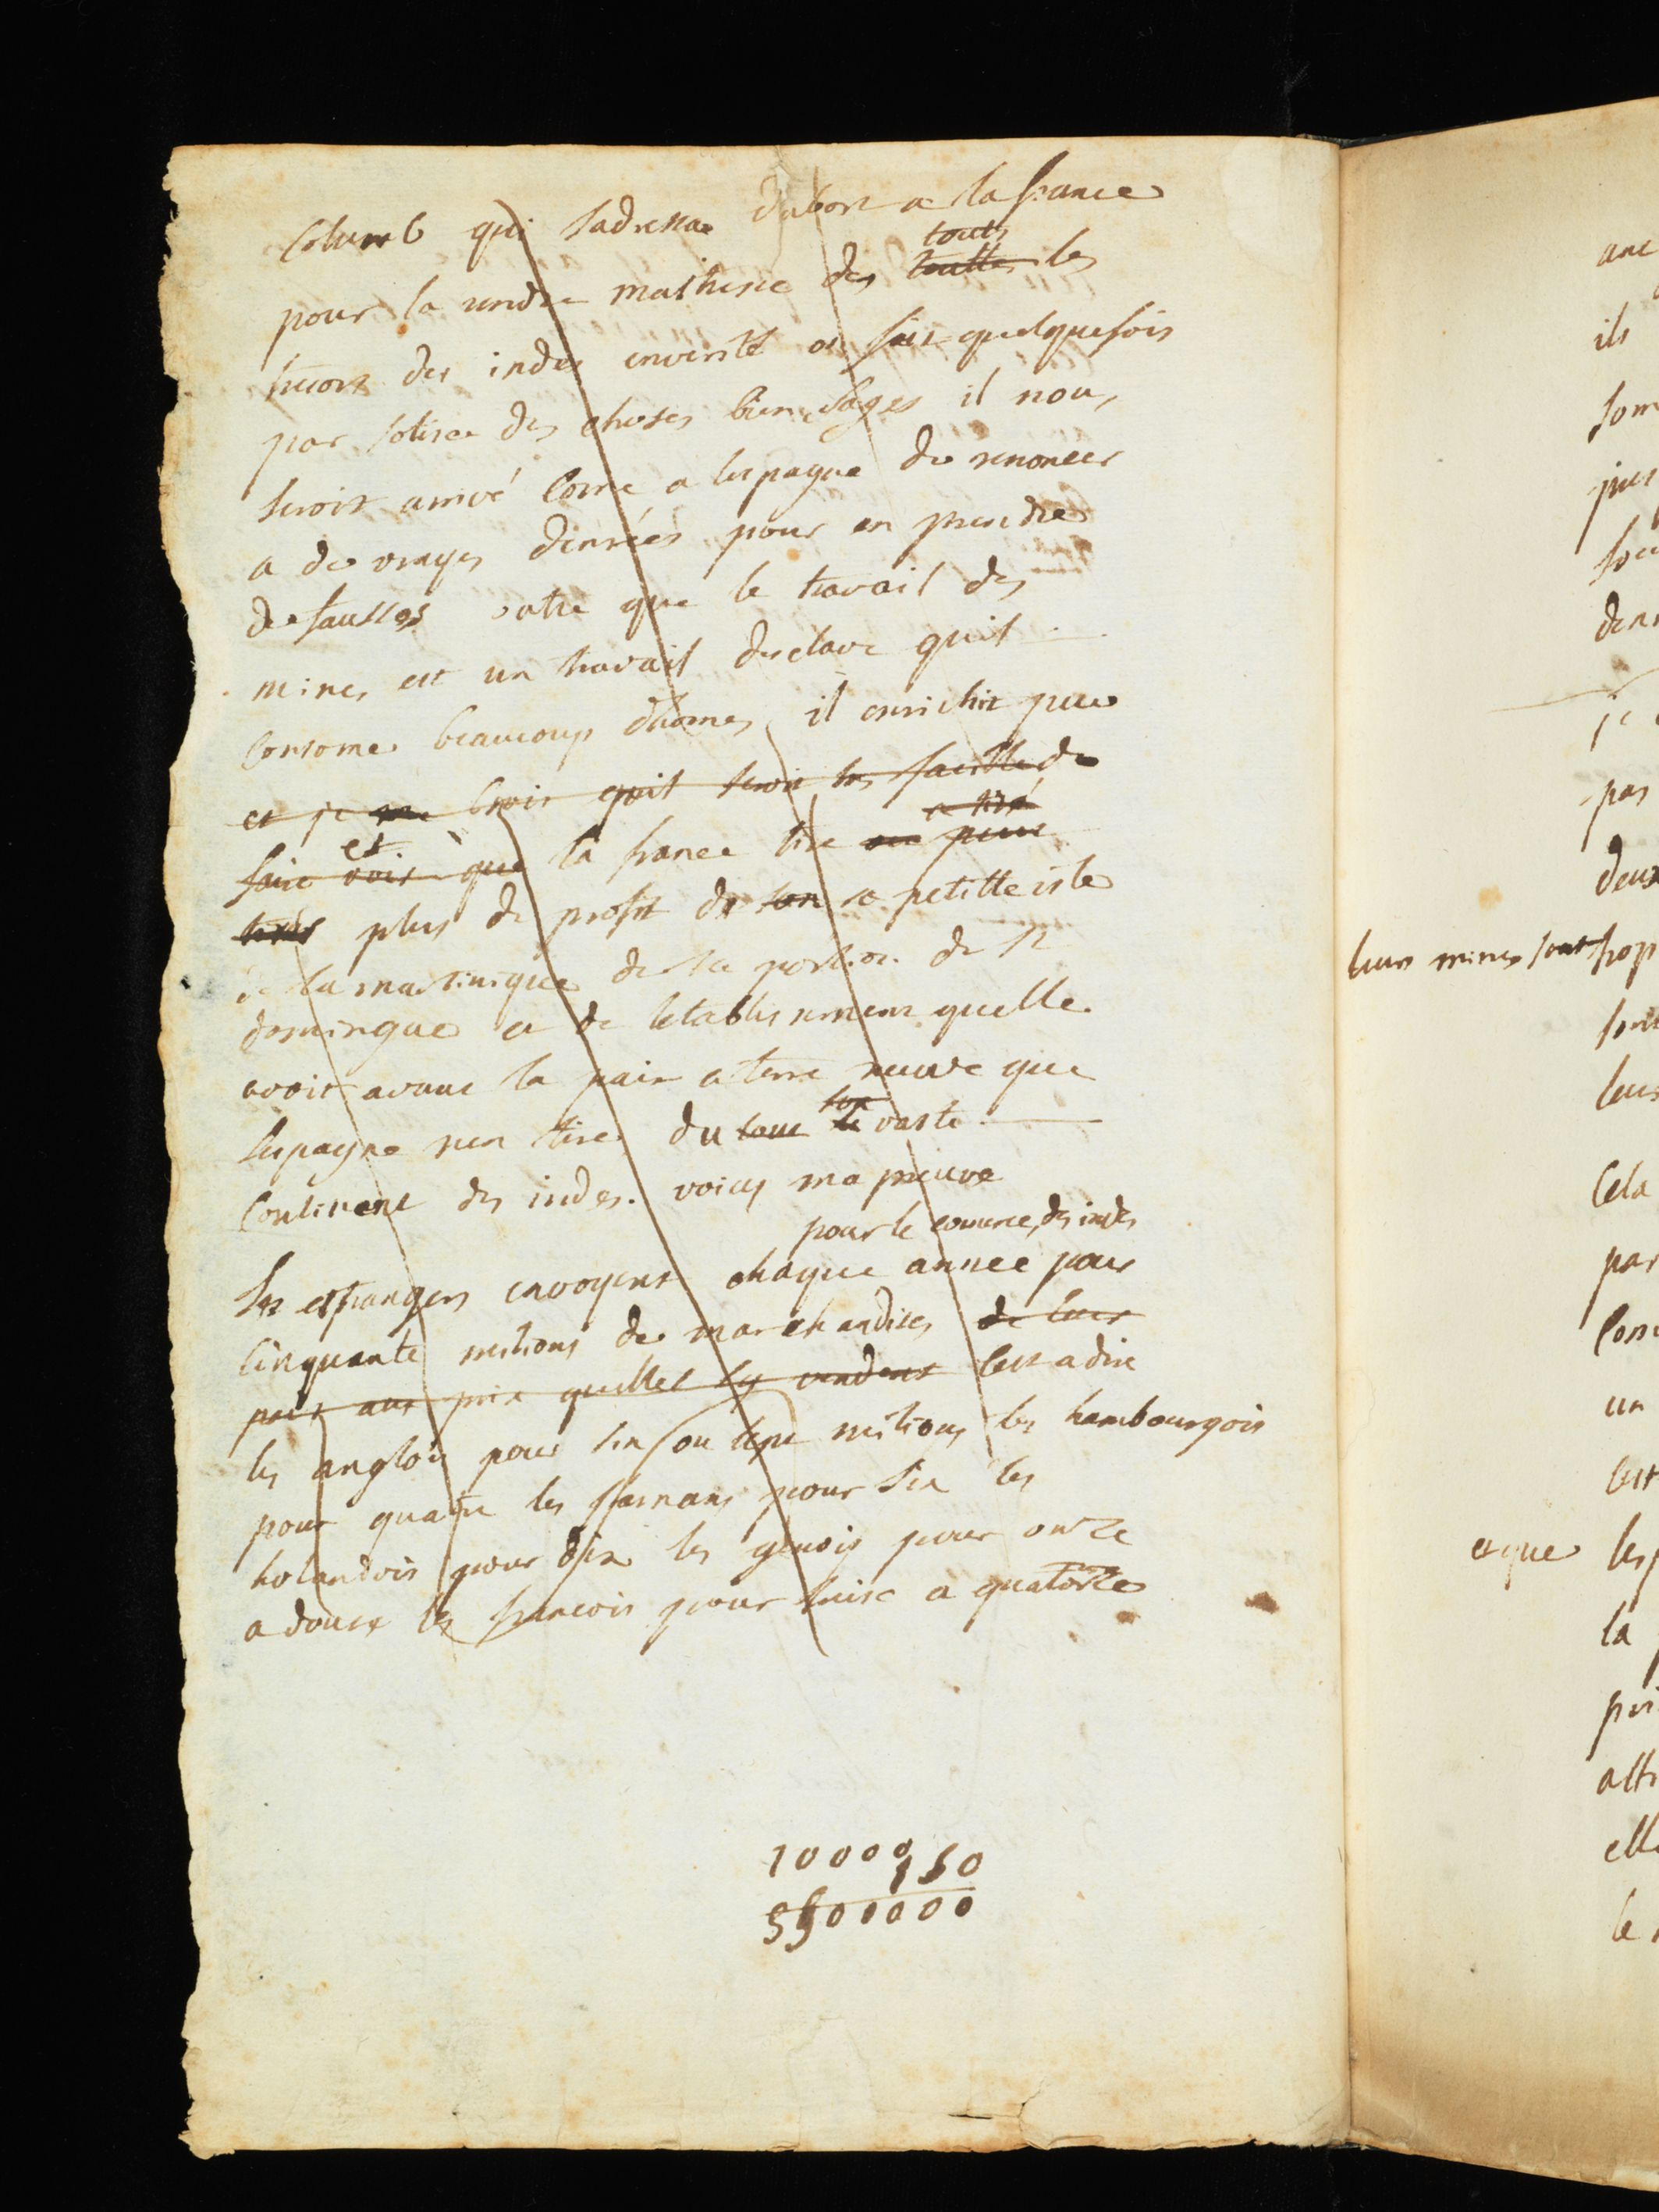 Colomb qui sadressa dabort a la france
touts
pour la rendre maitresse des touttes les
tresors des indes enverité on fait quelquefois
par sotise des choses bien sages il nous
seroit arrivé Come a lespagne de renoncer
a de vrayes denrées pour en prendre
de fausses outre que le travail des
mines est un travail desclave qu'il
Consome beaucoup dhomes il enrichit peu
et je croix quil seroit tres facille de
et a tiré
faire voir que la france tire peut
tirer plus de profit de son sa petitte isle
de la martinique de la portion de St
domingue et de letablissement quelle
avoit avant la paix a terre neuve que
son
lespagne nen tire du tout le vaste
Continent des indes. voicy ma preuve
pour le comerce des indes
les etrangers envoyent chaque année pour
Cinquante milions de marchandises de leur
pays aux prix quelles sy vendent Cest a dire
les anglois pour six ou sept milions les hambourgois
pour quatre les flamans pour six les
holandois pour dix les genois pour onze
a douze les francois pour treise a quatorze
10000150
5500000
anc
ils
som
jus
soci
den
je
pas
deux
leurs mines sont trop
sont
leurs
Cela
par
Com
un
Cest
et que les
la
poi
atti
elle
le